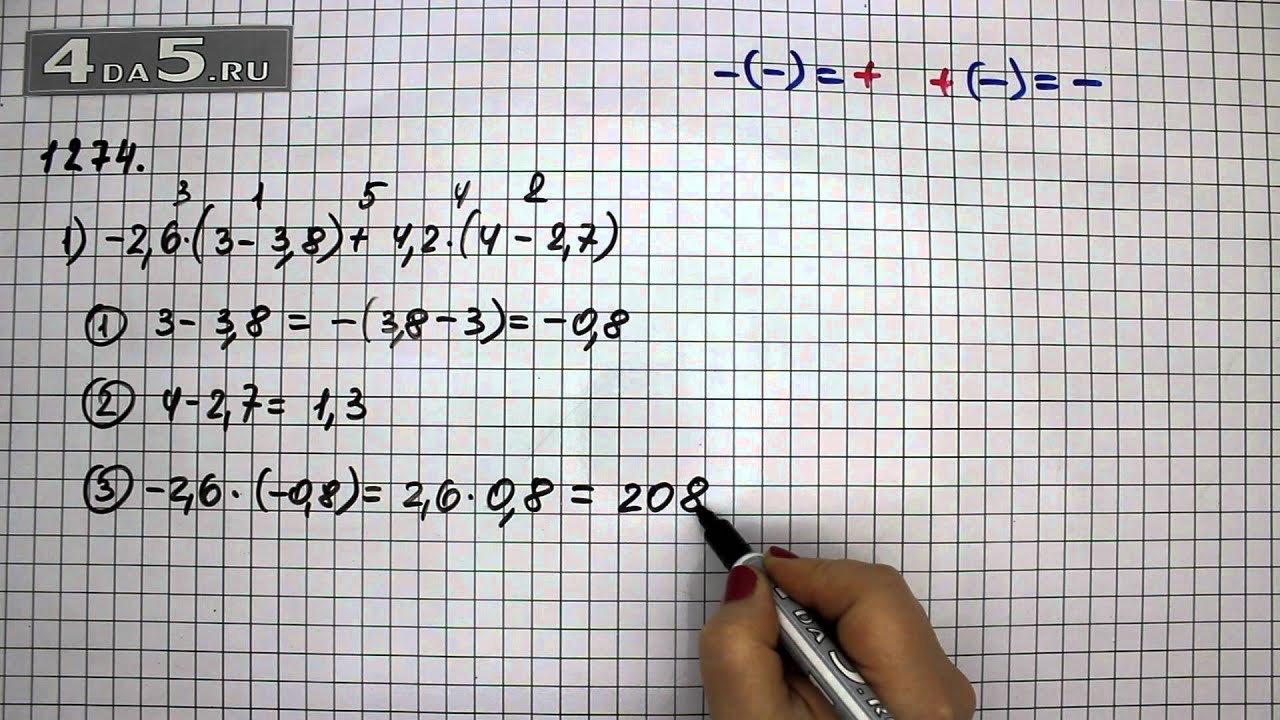 4DA5.RU
-(-)=+ +(-)=-
1274.
3 1 5 4 2
1) -2,6·(3-3,8)+ 4,2·(4-2,7)
① 3-3,8 = -(3,8-3)= -0,8
② 4-2,7= 1,3
③ -2,6·(-0,8)= 2,6·0,8 = 208